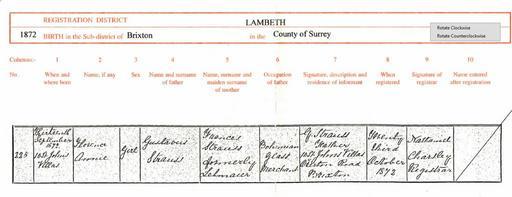 REGISTRATION DISTRICT LAMBETH
Rotate Clockwise
Rotate Counterclockwise
1872 BIRTH in the Sub-district of Brixton in the County of Surrey
Columns:- 1 2 3 4 5 6 7 8 9 10
No. When and where born Name, if any Sex Name and surname of father Name, surname and maiden surname of mother Occupation of father Signature, description and residence of informant When registered Signature of registrar Name entered after registration
228 Thirteenth September 1872 10 St Johns Villas
Florence Annie
Girl
Gustavus Strauss
Frances Strauss formerly
Bohemian Glass Merchant
G Strauss Father 10 St Johns Villas Road Brixton
Twenty third October 1872
Nathaniel Charsley Registrar